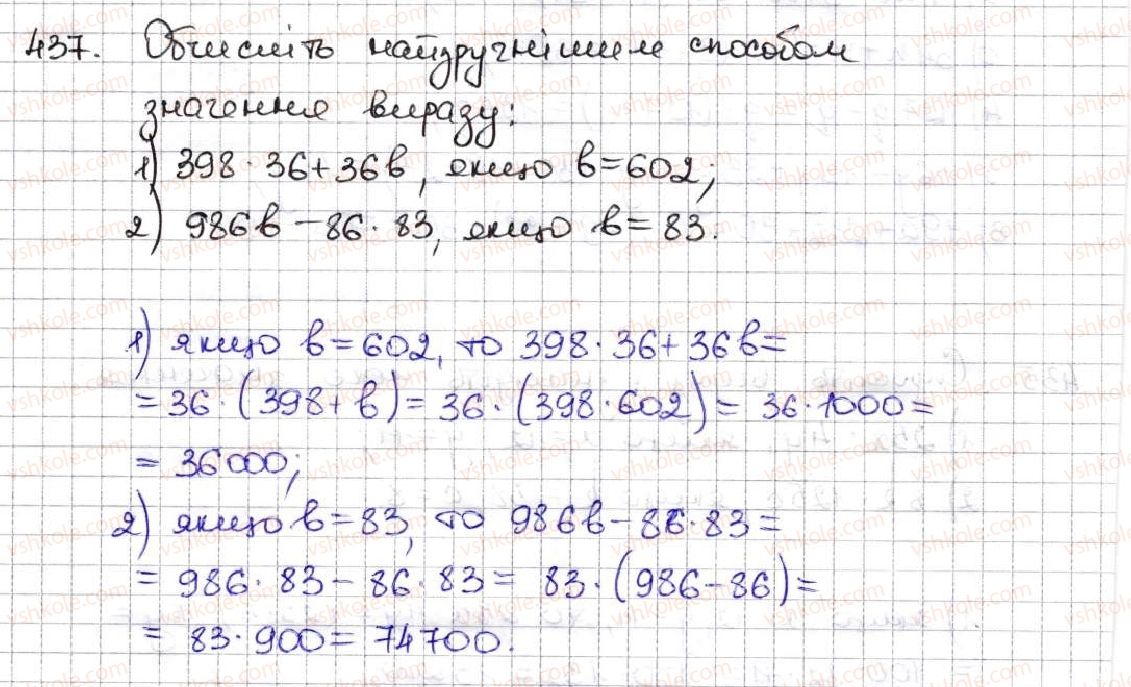 437. Обчисліть найзручнішим способом
значення виразу:
1) 398 · 36 + 36в, якщо в = 602;
2) 986в − 86 · 83, якщо в = 83.
1) якщо в = 602, то 398 · 36 + 36в =
= 36 · (398 + в) = 36 · (398 · 602) = 36 · 1000 =
= 36000;
2) якщо в = 83, то 986в − 86 · 83 =
= 986 · 83 − 86 · 83 = 83 · (986 − 86) =
= 83 · 900 = 74700.